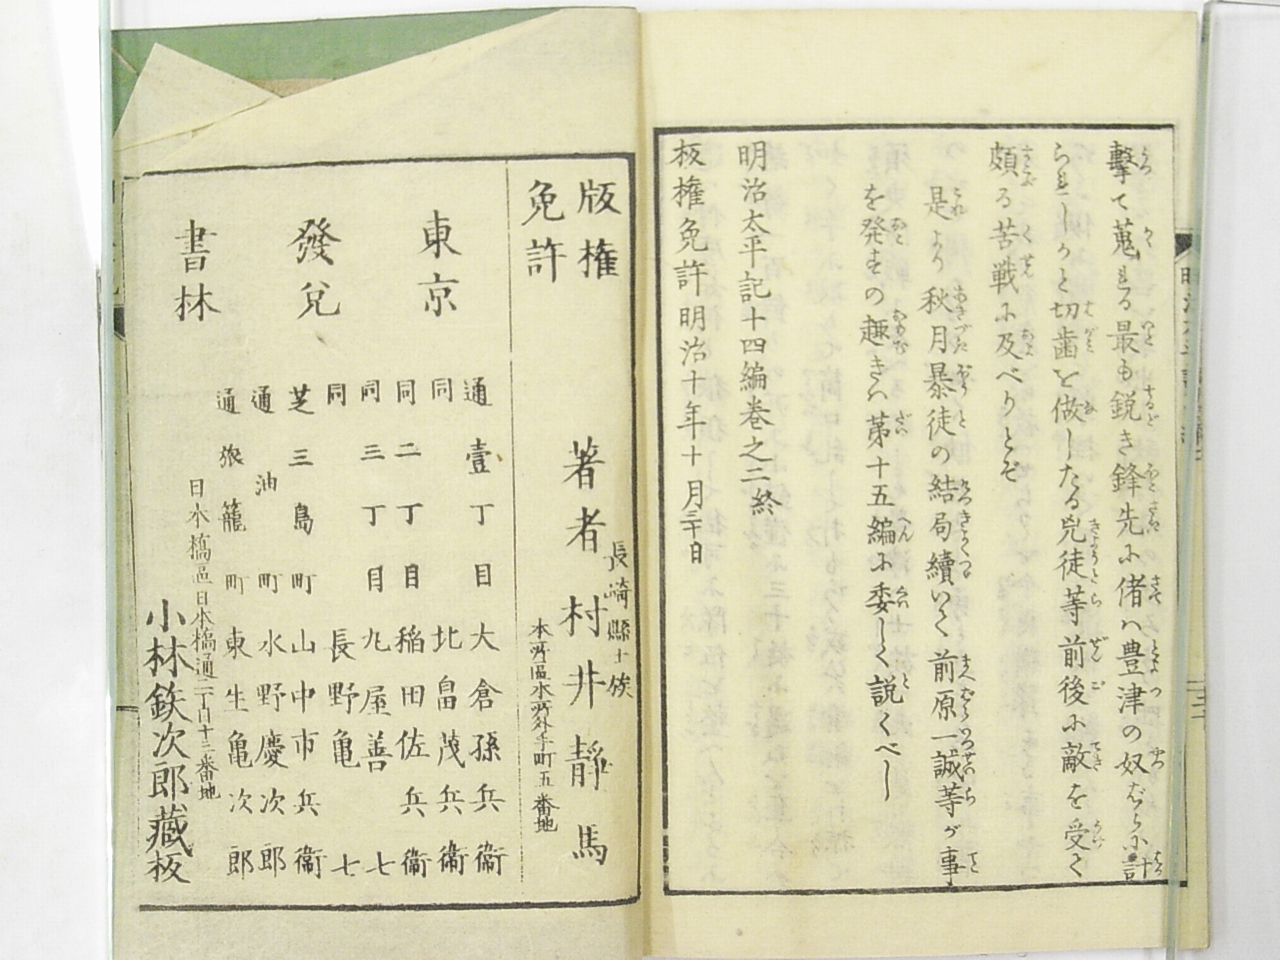 擊て蒐きる最も鋭き鋒先に偖ハ豊津の奴ばらに計
られしかと切歯を做したる兇徒等前後に敵を受て
頗る苦戦に及べりとぞ
是より秋月暴徒の結局續いて前原一誠等が事
を発すの趣きハ第十五編に委しく説くべし
明治太平記十四編巻之二終
板権免許明治十年十月三十日
版権
免許
長崎縣士族
著者村井靜馬
本所區本所外手町五番地
東京
發兌
書林
通壹丁目大倉孫兵衞
同北畠茂兵衞
同二丁目稲田佐兵衞
同三丁目丸屋善七
同長野亀七
芝三島町山中市兵衞
通油町水野慶次郎
通旅籠町東生亀次郎
日本橋區日本橋通二丁目十二番地
小林鉄次郎藏板